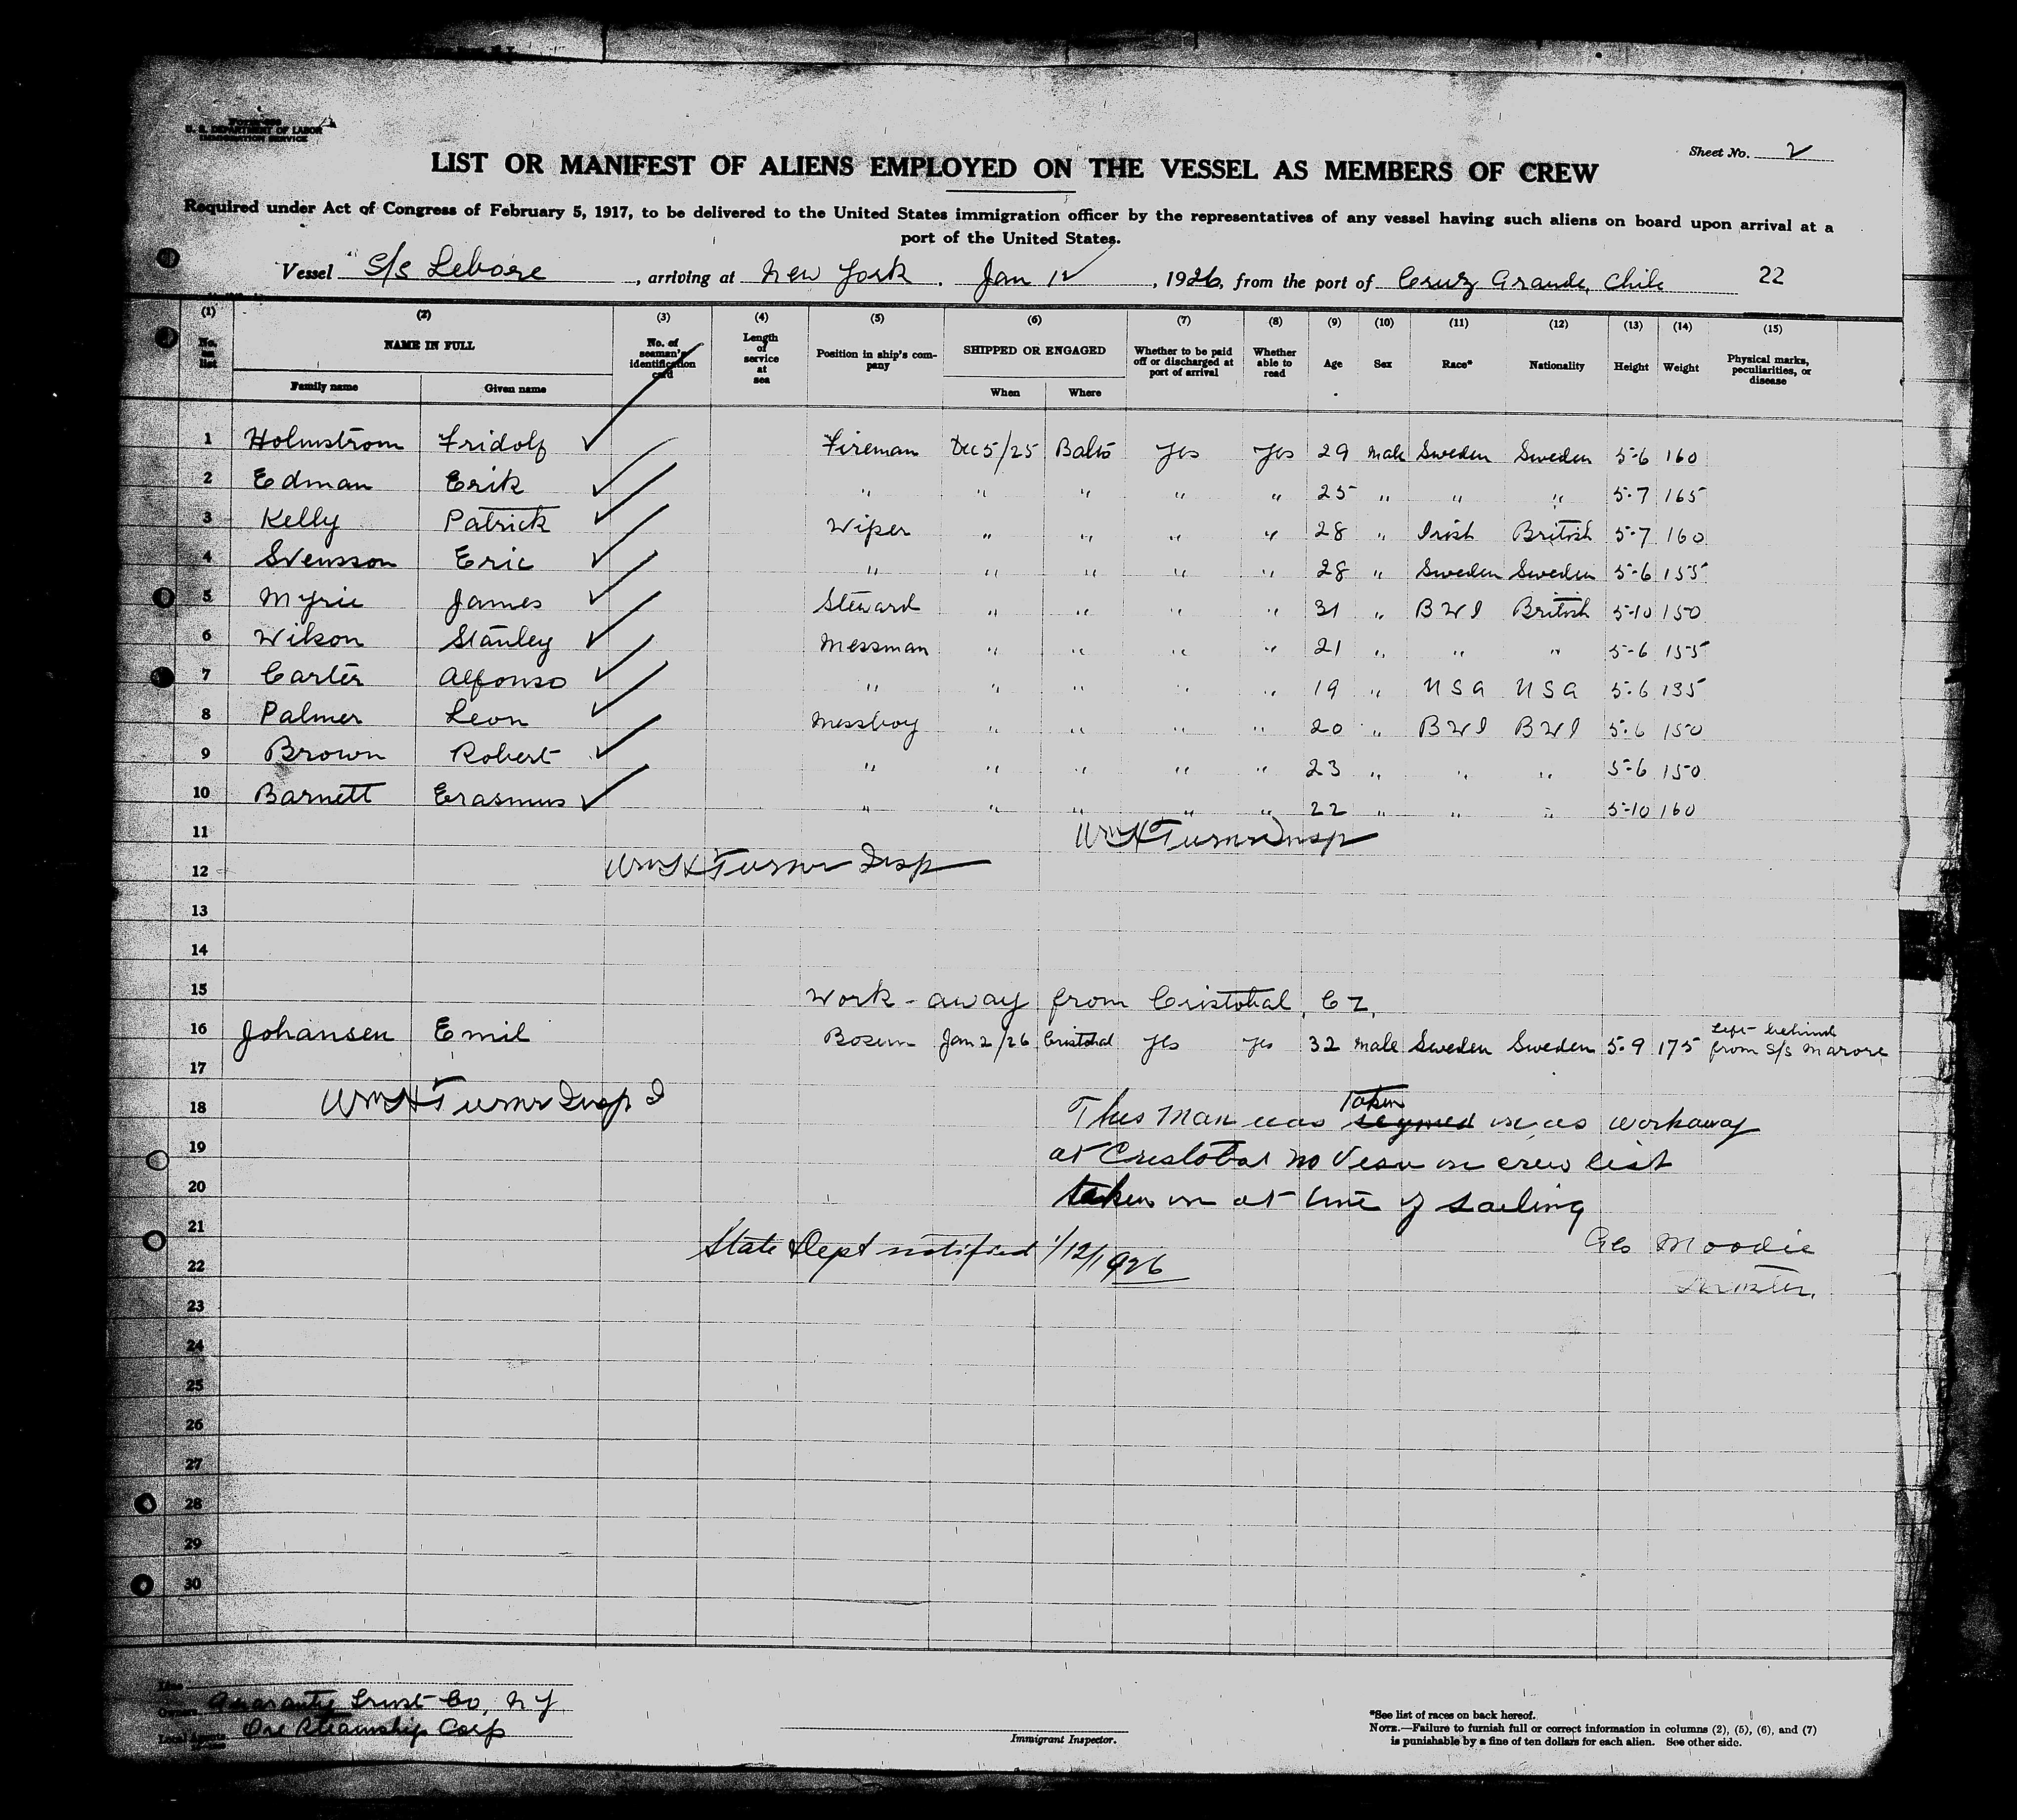 U. S. DEPARTMENT OF LABOR
IMMIGRATION SERVICE
Sheet No. 2
LIST OR MANIFEST OF ALIENS EMPLOYED ON THE VESSEL AS MEMBERS OF CREW
Required under Act of Congress of February 5, 1917, to be delivered to the United States immigration officer by the representatives of any vessel having such aliens on board upon arrival at a
port of the United States.
Vessel S/S Lebore, arriving at New York. Jan 12, 1926, from the port of Cruz Grande, Chile 22
(1) (2) (3) (4) (5) (6) (7) (8) (9) (10) (11) (12) (13) (14) (15)
No. on list NAME IN FULL Family name Given name No. of seaman's identification card Length of service at sea Position in ship's company SHIPPED OR ENGAGED When Where Whether to be paid off or discharged at port of arrival Whether able to read Age Sex Race* Nationality Height Weight Physical marks, peculiarities, or disease
1 Holmstrom Fridolf Fireman Dec 5/25 Balto Yes Yes 29 Male Sweden Sweden 5-6 160
2 Edman Erik " " " " " 25 " " " 5-7 165
3 Kelly Patrick Wiper " " " " 28 " Irish British 5-7 160
4 Svensson Eric " " " " " 28 " Sweden Sweden 5-6 155
5 Myrie James Steward " " " " 31 " BWI British 5-10 150
6 Wilson Stanley Messman " " " " 21 " " " 5-6 155
7 Carter Alfonso " " " " " 19 " USA USA 5-6 135
8 Palmer Leon Messboy " " " " 20 " BWI BWI 5-6 150
9 Brown Robert " " " " " 23 " " " 5-6 150
10 Barnett Erasmus " " " " " 22 " " " 5-10 160
11 Wm H Turner Insp
12 Wm H Turner Insp
13
14
15 Work-away from Cristobal, CZ.
16 Johansen Emil Bosun Jan 2/26 Cristobal Yes Yes 32 Male Sweden Sweden 5-9 175 Left behind from S/S Marore
17
18 Wm H Turner Insp This man was signed Taken on as workaway
19 at Cristobal no Visa on crew list
20 taken on at time of sailing
21 Geo Moodie
22 State Dept notified 1/12/1926
Master.
23
24
25
26
27
28
29
30
Owners Guaranty Trust Co, NY
Local Agents Ore Steamship Corp
Immigrant Inspector.
*See list of races on back hereof.
NOTE.—Failure to furnish full or correct information in columns (2), (5), (6), and (7)
is punishable by a fine of ten dollars for each alien. See other side.